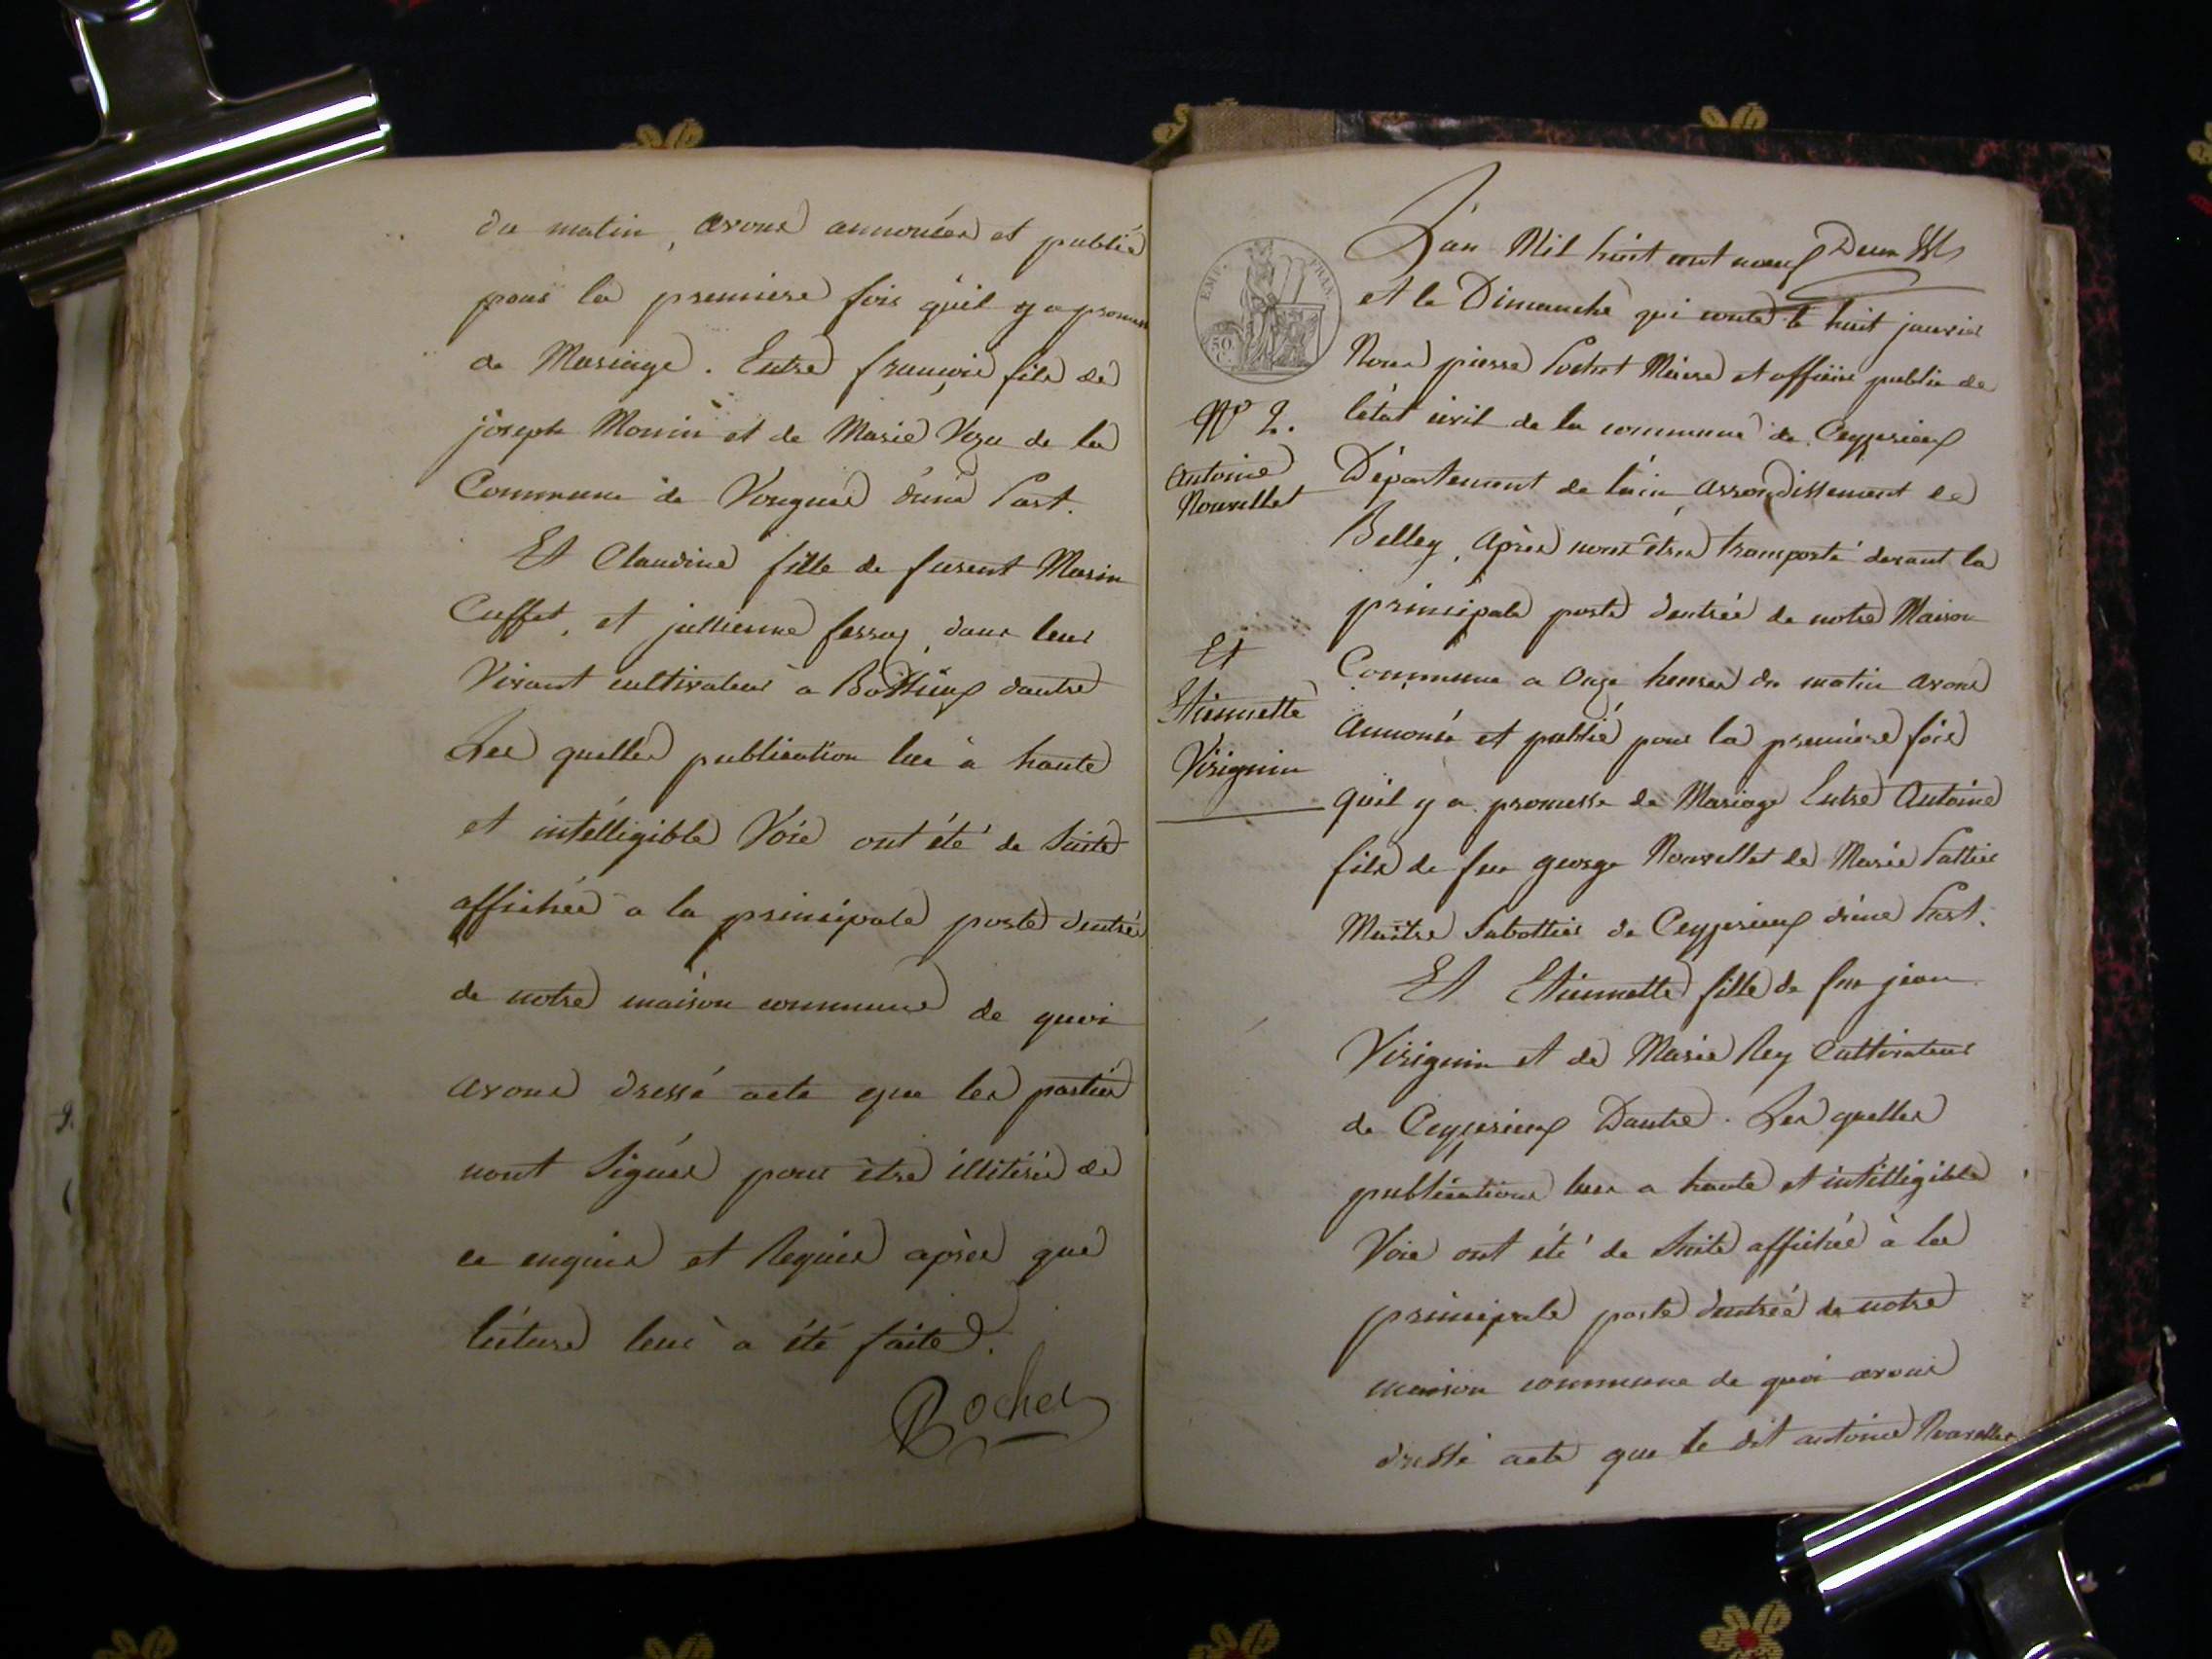 du matin, avons annoncés et publié
pour la premiere fois qu'il y a promess
de Mariage. Entre françois fils de
joseph Monin et de Marie Veza de la
Commune de Vongnes d'une Part.
Et Claudine fille de furent Marin
Cuffet, et jullienne fessoy, dans leur
Vivant cultivateur a Bottieux dautre
Les quelles publication lue à haute
et intélligible Voie ont été de Suite
affichée a la principale porte dentrée
de notre maison commune de quoi
avons dressé acte que les parties
nont Signés pour être illitérés de
ce enquis et Requis après que
lécture leur a été faite.
Rochet
L'an Mil huit cent neuf Deux
et le Dimanche qui conte le huit janvier
Nous pierre Rochet Maire et officier public de
l'état civil de la commune de Ceyzerieux
Département de l'ain arrondissement de
Belley, Après nous êtres transporté devant la
principale porte dentrée de notre Maison
Commune a Onze heures du matin avons
Annoncé et publié pour la premiére fois
qu'il y a promesse de Mariage Entre Antoine
fils de feu george Nouvellet de Marie Pattier
Maitre Sabottier de Ceyzerieux d'une Part.
Et Etiennette fille de feu jean
Virignin et de Marie Rey Cultivateur
de Ceyzerieux Dautre. Les quelles
publications lues a haute et intélligible
Voie ont été de Suite affichée à la
principale porte dentrée de notre
maison commune de quoi avons
dressé acte que le dit antoine Nouvellet
EMP. FRAN.
50 C.
N° 2.
Antoine
Nouvellet
Et
Etiennette
Virignin